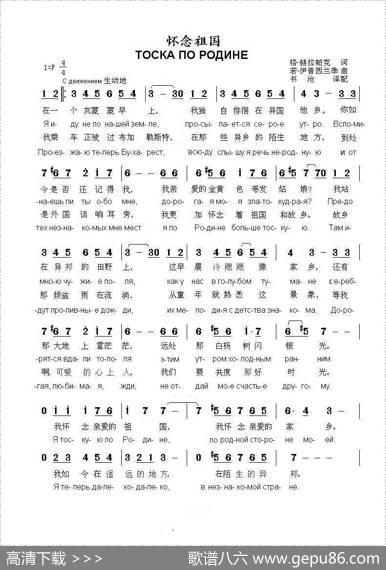 怀念祖国
ТОСКА ПО РОДИНЕ
格·赫拉帕克 词
1=F 4/4
若·伊普西兰季 曲
С движением 生动地
书 沧 译配
1 2 3 4 5 6 5 4 3 – 3 0 1 2 3 4 5 6 5 4 3 – 3 0 1 2
在 一 个 灰 蒙 蒙 早 上, 我 独 自 徘 徊 在 异 国 他 乡。 你 如
Я и ду не по на шей зем ле, про сы па ет ся се ро е ут ро. Вспо ми-
我 乘 车 正 驶 过 布 加 勒 斯 特, 在 那 些 异 乡 的 陌 生 地 方, 到 处
Про ез- жа ю те перь Бу ха- рест, всю ду слы шу я речь не род- ну ю и от
今 是 否 还 记 得 我, 我 亲 爱 的 金 黄 色 卷 发 姑 娘? 我 站
-на ешь ли ты о бо мне, до ро- га я мо я зла то- куд ра я? Пре до
是 外 国 话 响 耳 旁, 我 更 加 怀 念 着 祖 国 和 故 乡。 故 乡
тех не зна- ко мых мне мест я по Ро ди не боль ше тос ку ю. Там и-
在 异 邦 的 田 野 上, 这 早 晨 冷 飕 飕 像 家 乡, 还 有
мно ю чу жи е по ля, как у нас в го лу бом ту ма- не се реб-
那 倾 盆 雨 在 流 淌, 从 童 年 就 熟 悉 这 景 象, 等 我
-дут про лив ны е дож ди, их ме ло- ди я с дет ства зна- ко ма. До ро-
那 大 地 上 雾 茫 茫, 远 处 那 白 杨 树 闪 银 光。
-рят ся вда ли то по ля э тим ут- ром хо лод ным ран- ним.
啊, 可 爱 的 心 上 人, 我 们 要 共 度 那 好 时 光。
-га я, лю би- ма я, жди, не от- дай мо е сча стье дру го- му.
我 怀 念 亲 爱 的 祖 国, 我 怀 念 亲 爱 的 家 乡。
Я тос ку ю по Ро ди- не, по род ной сто ро- не мо ей.
我 如 今 在 遥 远 的 地 方, 在 陌 生 的 异 邦。
Я те перь да ле ко- да ле ко, в не зна- ко мой стра не.
高清下载 >>>
歌谱八六 www.gepu86.com